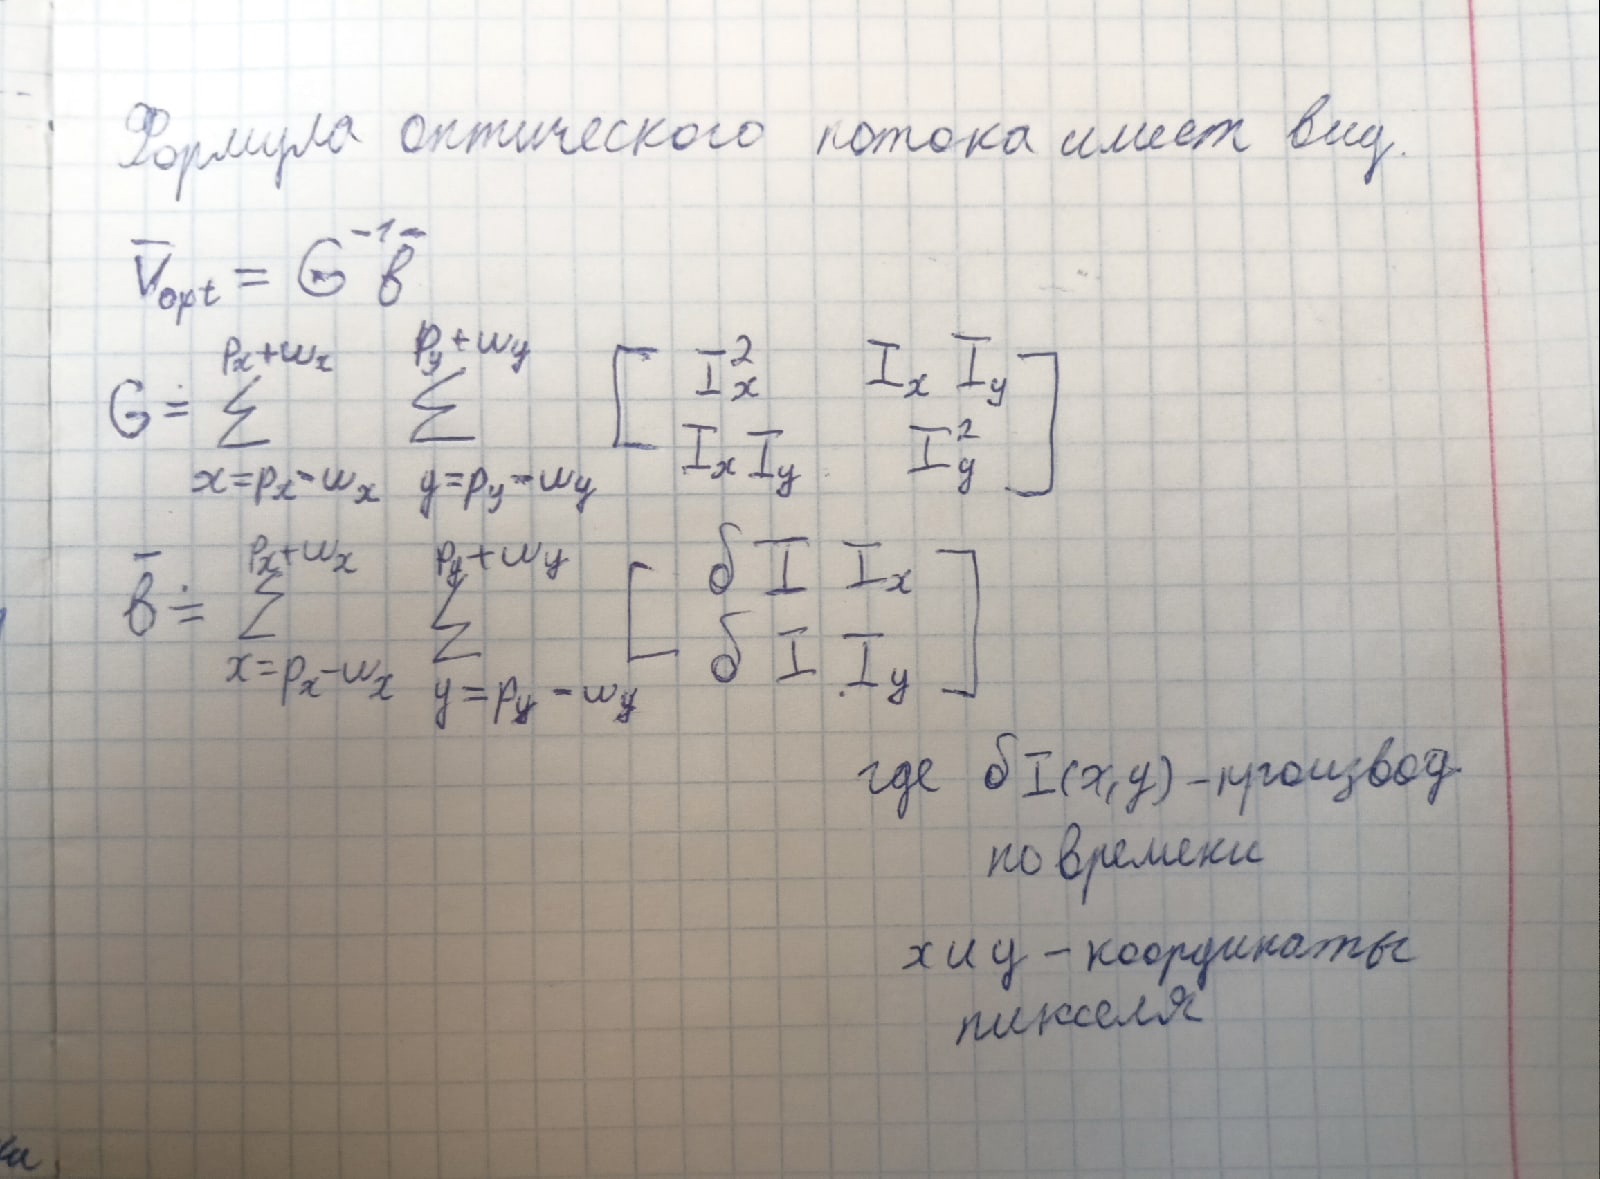 Формула оптического потока имеет вид.
V̄opt = G⁻¹ b̄
G ≐ ∑_{x=px-wx}^{px+wx} ∑_{y=py-wy}^{py+wy} [ I_x^2 I_x I_y ; I_x I_y I_y^2 ]
b̄ ≐ ∑_{x=px-wx}^{px+wx} ∑_{y=py-wy}^{py+wy} [ δ I I_x ; δ I I_y ]
где δI(x,y) - производ
по времени
x и y - координаты
пикселя